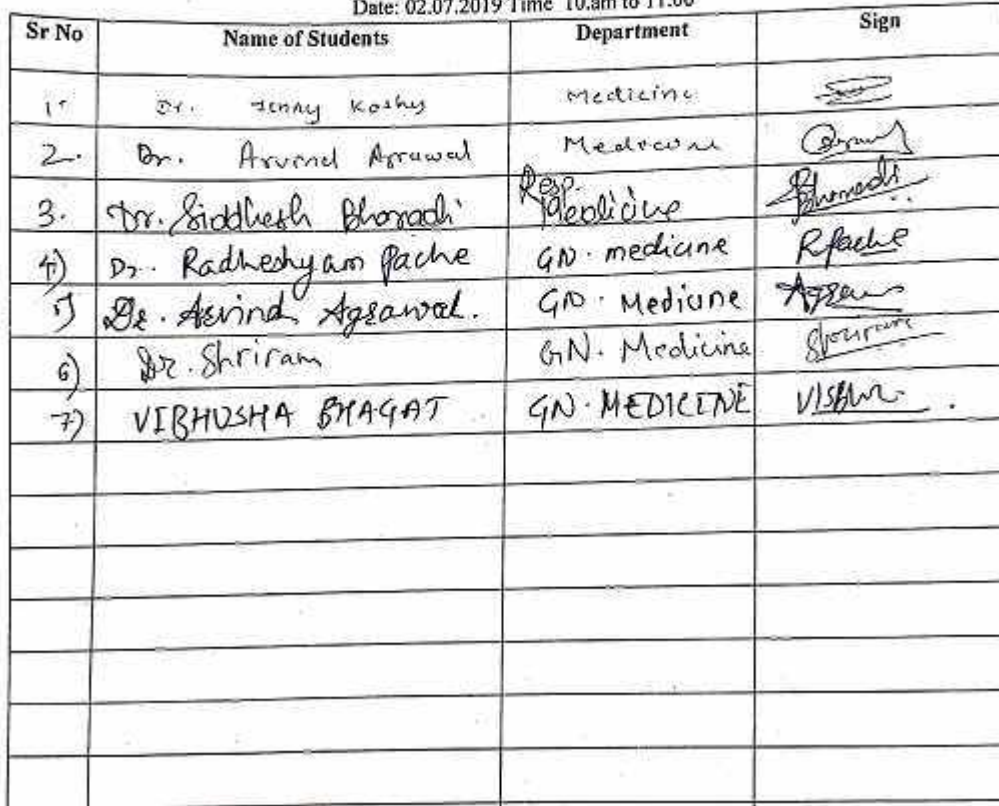 Date: 02.07.2019 Time 10.am to 11.00
Sr No Name of Students Department Sign
1. Dr. Jenny Koshy Medicine
2. Dr. Arvind Agrawal Medicine
3. Dr. Siddhesh Bhoradi Resp. Medicine
4) Dr. Radheshyam Pache GN. medicine RPache
5) Dr. Asvind Agrawal. GN. Medicine
6) Dr. Shriram GN. Medicine
7) VIBHUSHA BHAGAT GN. MEDICINE